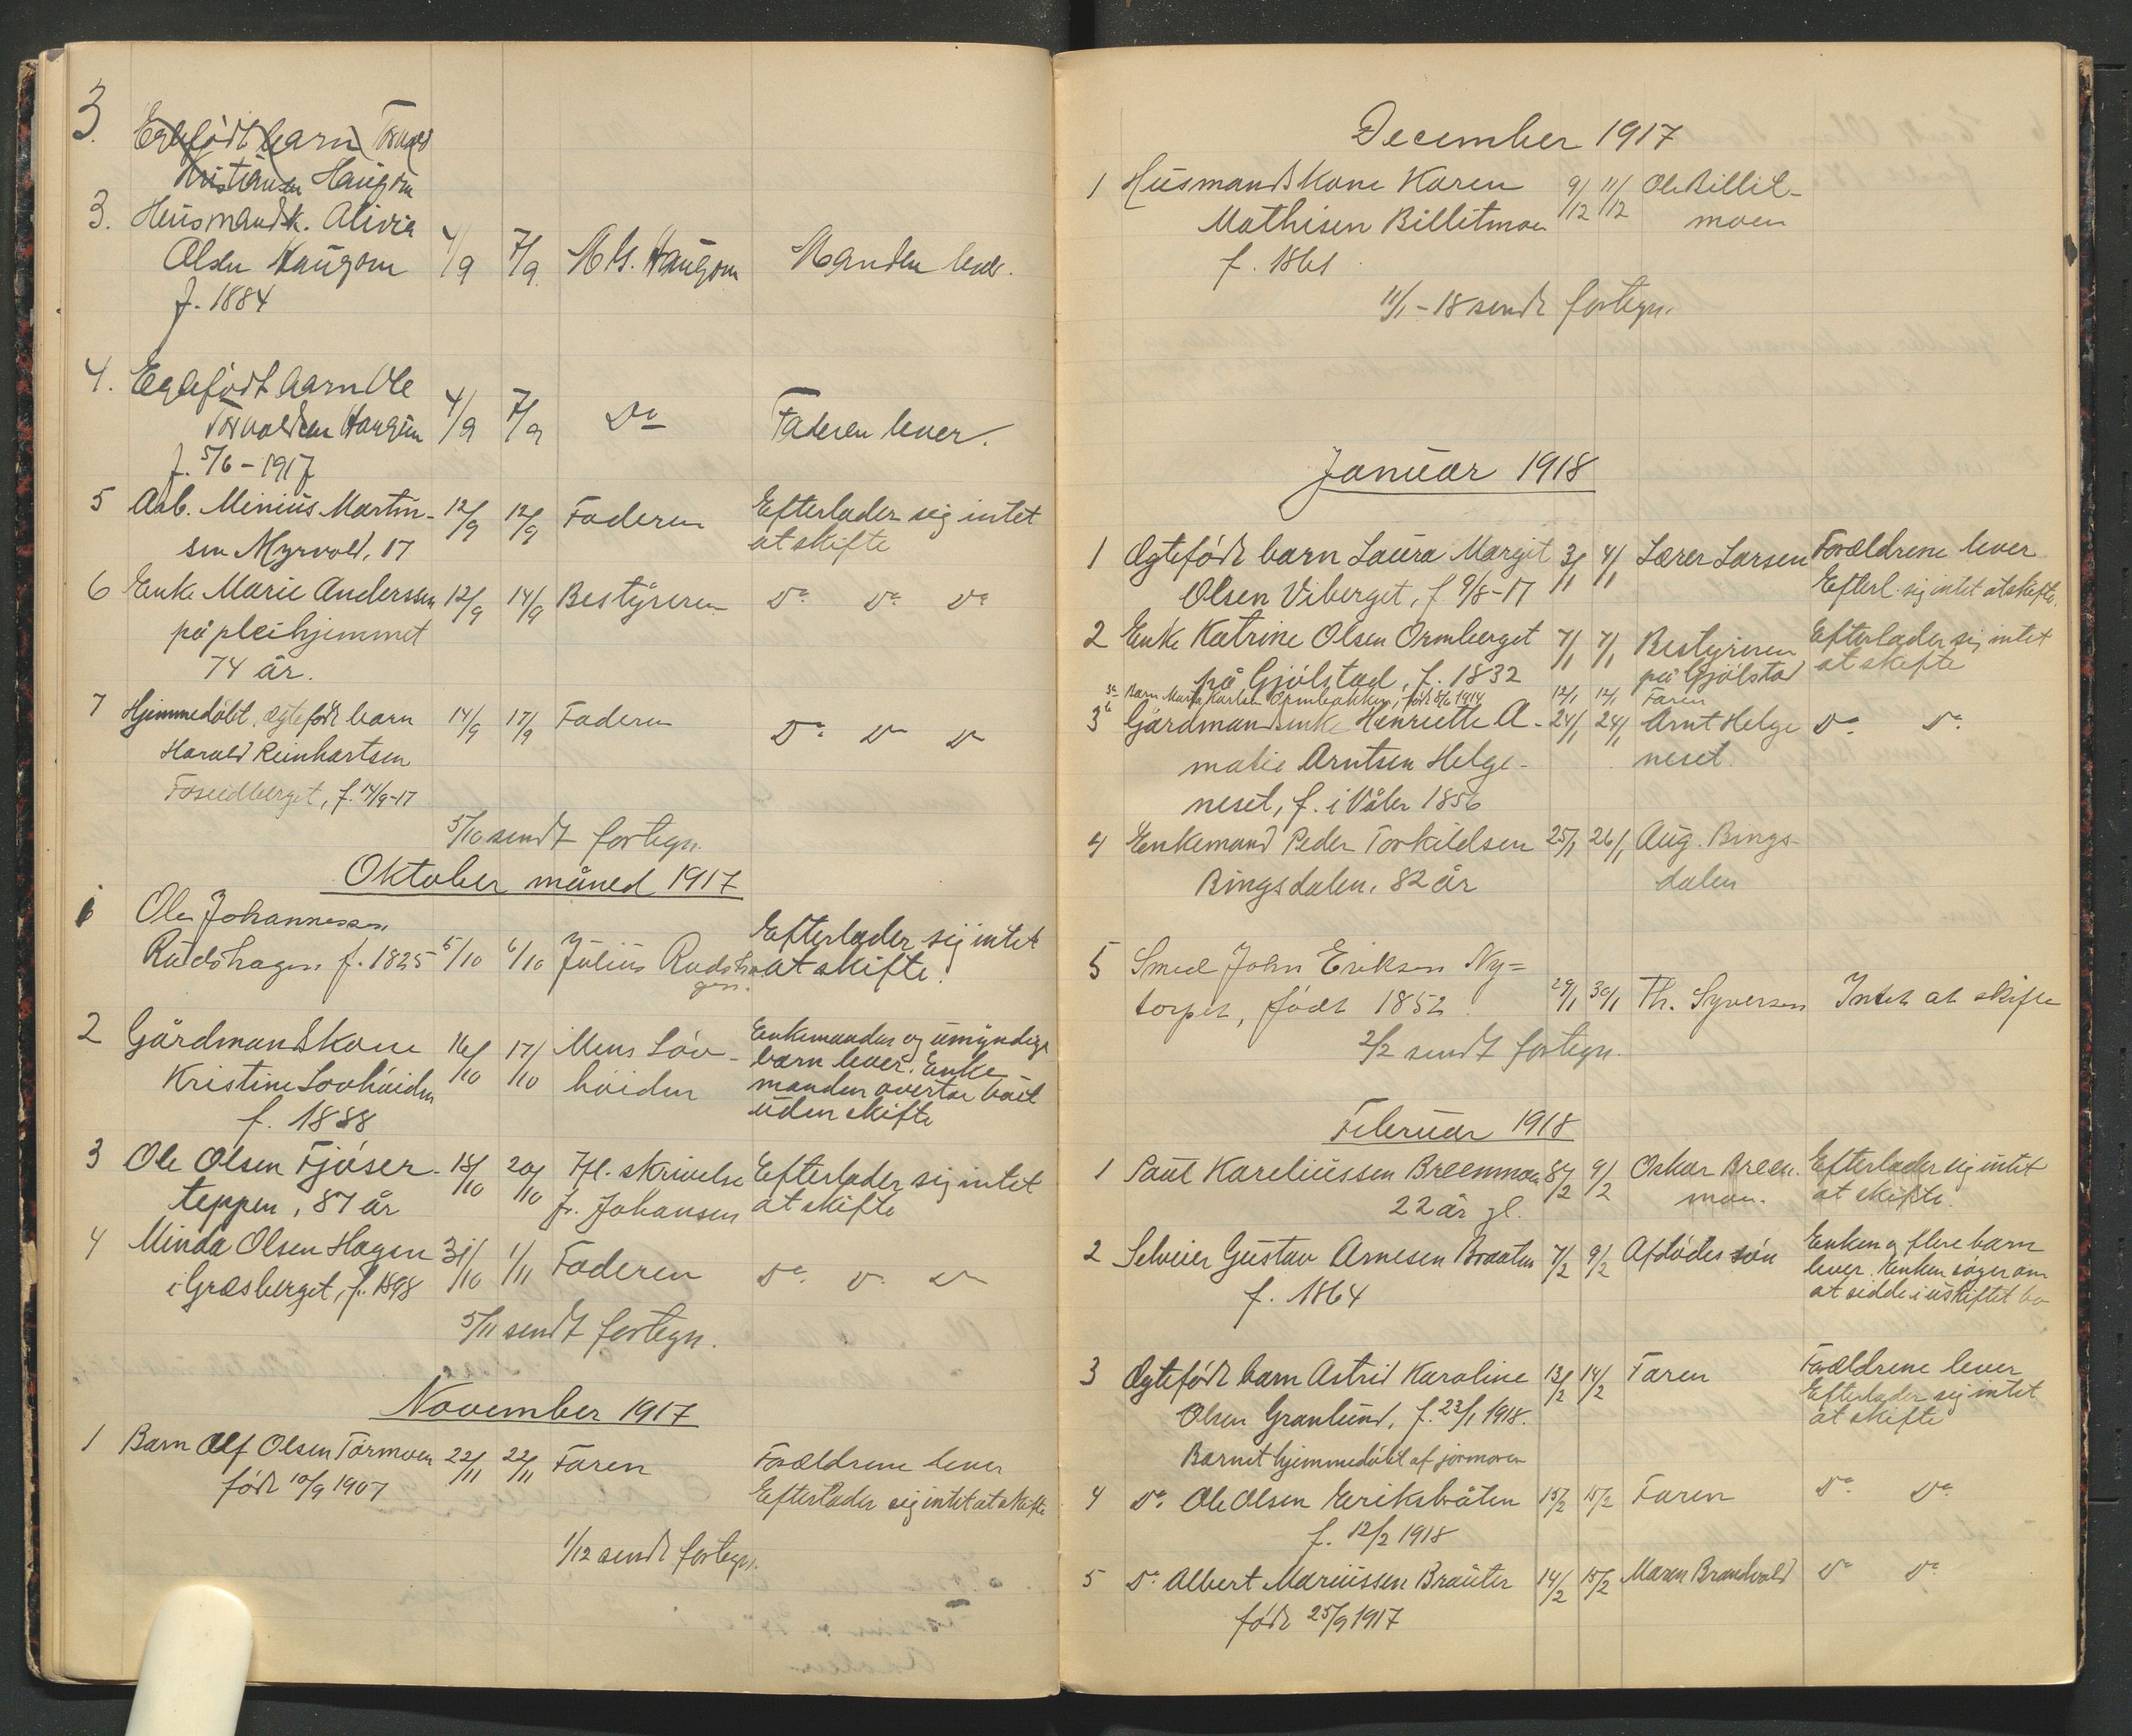 3. Egtefødt barn Torvald
Kristiansen Haugom
3. Husmandsk. Alivia
Olsen Haugom 4/9 7/9 M G. Haugom Manden lever.
f. 1884
4. Egtefødt barn Ole
Torvaldsen Haugom 4/9 7/9 Do Faderen lever.
f. 5/6 - 1917
5 Arb. Minius Martin- 12/9 12/9 Faderen Efterlader sig intet
sen Myrvold, 17 at skifte
6 Enke Marie Andersen 12/9 14/9 Bestyreren Do Do Do
på pleihjemmet
74 år.
7 Hjemmedøbt, ægtefødt barn 14/9 17/9 Faderen Do Do Do
Harald Reinhartsen
f. 14/9-17
5/10 sendt fortegn.
Oktober måned 1917
1 Ole Johannessen
Rudshagen f. 1825 5/10 6/10 Julius Rudsha- Efterlader sig intet
gen. at skifte.
2 Gårdmandskone 16/10 17/10 Mens Løv- Enkemanden og umyndige
Kristine Lovhøiden høiden barn lever. Enke
f. 1888 manden overtar boet
uden skifte
3 Ole Olsen Fjøser- 18/10 20/10 Ifl. skrivelse Efterlader sig intet
teppen, 87 år fr. Johansen at skifte
4 Minda Olsen Hagen 31/10 1/11 Faderen Do Do Do
i Græsberget, f. 1898
5/11 sendt fortegn.
November 1917
1 Barn Alf Olsen Tørmoen 22/11 22/11 Faren Forældrene lever
født 10/9 1907 Efterlader sig intet at skifte
1/12 sendt fortegn.
December 1917
1 Husmandskone Karen 9/12 11/12 Ole Billit-
Mathisen Billitmoen moen
f. 1861
11/1 - 18 sendt fortegn.
Januar 1918
1 Ægtefødt barn Laura Margit 3/1 4/1 Lærer Larsen Forældrene lever
Olsen Viberget, f. 9/8-17 Efterl. sig intet at skifte.
2 Enke Katrine Olsen Ormberget 7/1 7/1 Bestyreren Efterlader sig intet
på Gjølstad, f. 1832 på Gjølstad at skifte
3a Barn Marta Karlsen Ormbakken, født 5/6 1914 12/1 12/1 Faren
3b Gårdmandsenke Henriette A- 24/1 24/1 Arnt Helge Do Do
malie Arntsen Helge- neset.
neset, f. i Våler 1856
4 Enkemand Peder Torkildsen 25/1 26/1 Aug. Rings-
Ringsdalen, 82 år dalen
5 Smed John Eriksen Ny=
torpet, født 1852. 29/1 30/1 Th. Syversen Intet at skifte
2/2 sendt fortegn.
Februar 1918
1 Paul Kareliussen Breenmoen 8/2 9/2 Oskar Breen- Efterlader sig intet
22 år gl. moen. at skifte.
2 Selveier Gustav Arnesen Braaten 7/2 9/2 Afdødes søn Enken og flere barn
f. 1864 lever. Enken søger om
at sidde i uskiftet bo
3 Ægtefødt barn Astrid Karoline 13/2 14/2 Faren Forældrene lever
Olsen Granlund, f. 23/1 1918. Efterlader sig intet
Barnet hjemmedøbt af jormoren at skifte
4 Do Ole Olsen Eriksbråten 15/2 15/2 Faren Do Do
f. 12/2 1918
5 Do Albert Mariussen Bråter 14/2 15/2 Maren Brandvold Do Do
født 25/9 1917